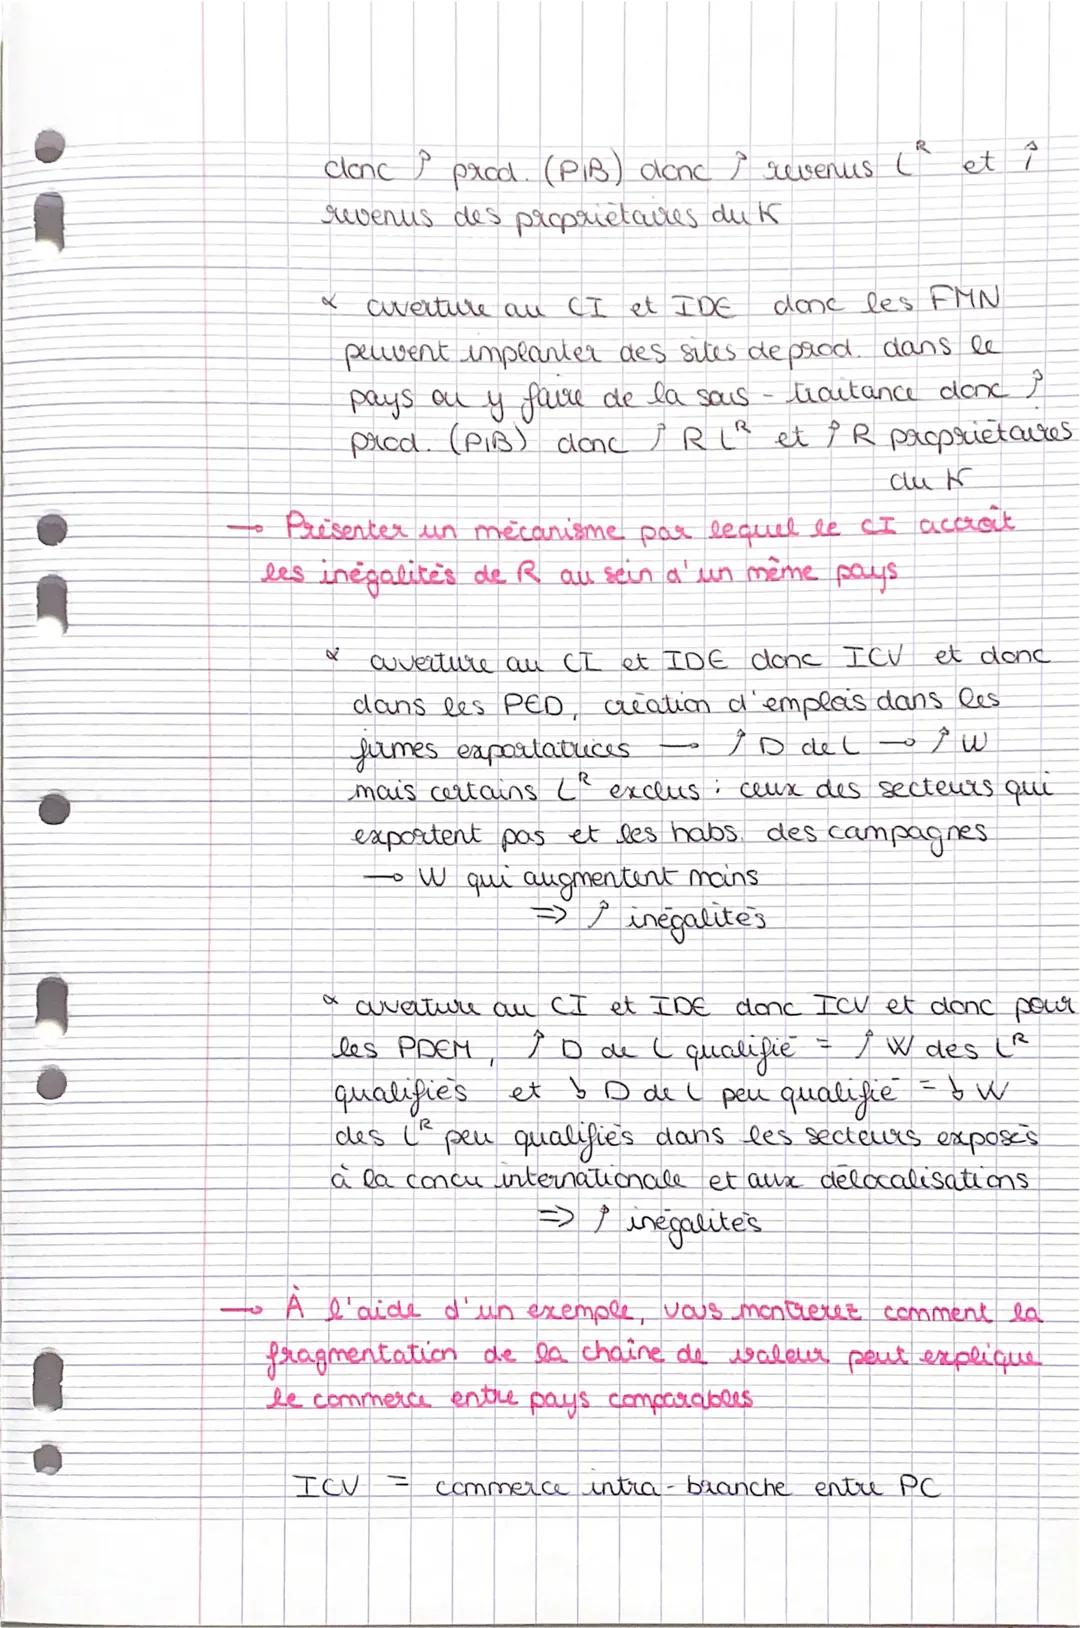 donc ↑ prod. (PIB) donc ↑ revenus L^R et ↑
revenus des propriétaires du K
α ouverture au CI et IDE donc les FMN
peuvent implanter des sites de prod. dans le
pays ou y faire de la sous-traitance donc ↑
prod. (PIB) donc ↑ R L^R et ↑ R propriétaires
du K
→ Présenter un mécanisme par lequel le CI accroît
les inégalités de R au sein d'un même pays
α ouverture au CI et IDE donc ICV et donc
dans les PED, création d'emplois dans les
firmes exportatrices → ↑ D de L → ↑ W
mais certains L^R exclus : ceux des secteurs qui
exportent pas et les habs. des campagnes
→ W qui augmentent moins
=> ↑ inégalités
α ouverture au CI et IDE donc ICV et donc pour
les PDEM, ↑ D de L qualifié = ↑ W des L^R
qualifiés et ↓ D de L peu qualifié = ↓ W
des L^R peu qualifiés dans les secteurs exposés
à la concu internationale et aux délocalisations
=> ↑ inégalités
→ À l'aide d'un exemple, vous montrerez comment la
fragmentation de la chaîne de valeur peut explique
le commerce entre pays comparables
ICV = commerce intra-branche entre PC